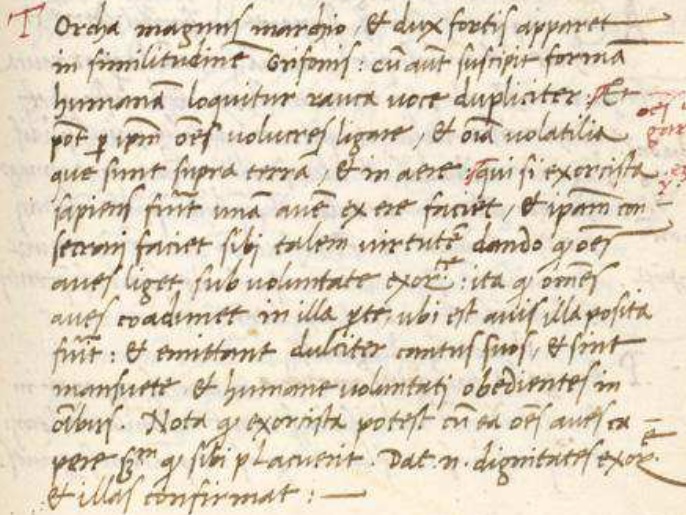 T Orcha magnus marchio, & dux fortis apparet
in similitudinē Grifonis: cū aūt suscipit formā
humanā loquitur rauca uoce dupliciter. Et
pōt p ipm̄ oēs volucres ligare, & oīa volatilia
que sunt supra terrā, & in aere qui si exorcista
sapiens fuīt unā auē ex ere faciet, & ipam̄ con
secranj faciet sibi talem uirtutē dando q oēs
aues liget sub voluntate exor: ita q omēs
aues coadunet in illa pte, ubi est auis illa posita
fuīt: & emittant dulciter cantus suos, & sint
mansuete & humane voluntati obedientes in
oībus. Nota q exorcista potest cū ea oēs aues ca =
pere q sibi placuerit. Dat. n. dignitates exor.
& illas confirmat: —
oēs
gar